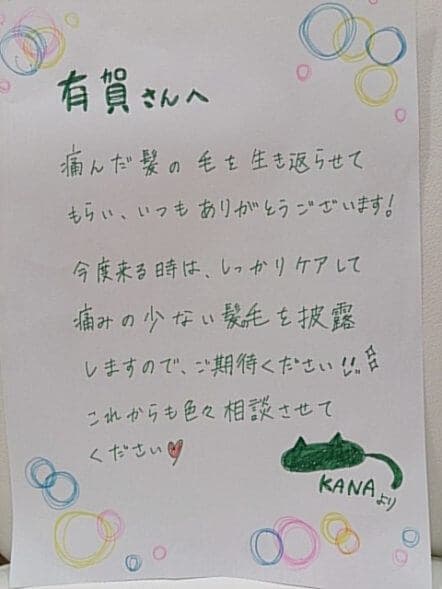 有賀さんへ
痛んだ髪の毛を生き返らせて
もらい、いつもありがとうございます!
今度来る時は、しっかりケアして
痛みの少ない髪毛を披露
しますので、ご期待ください!!
これからも色々相談させて
ください
KANAより